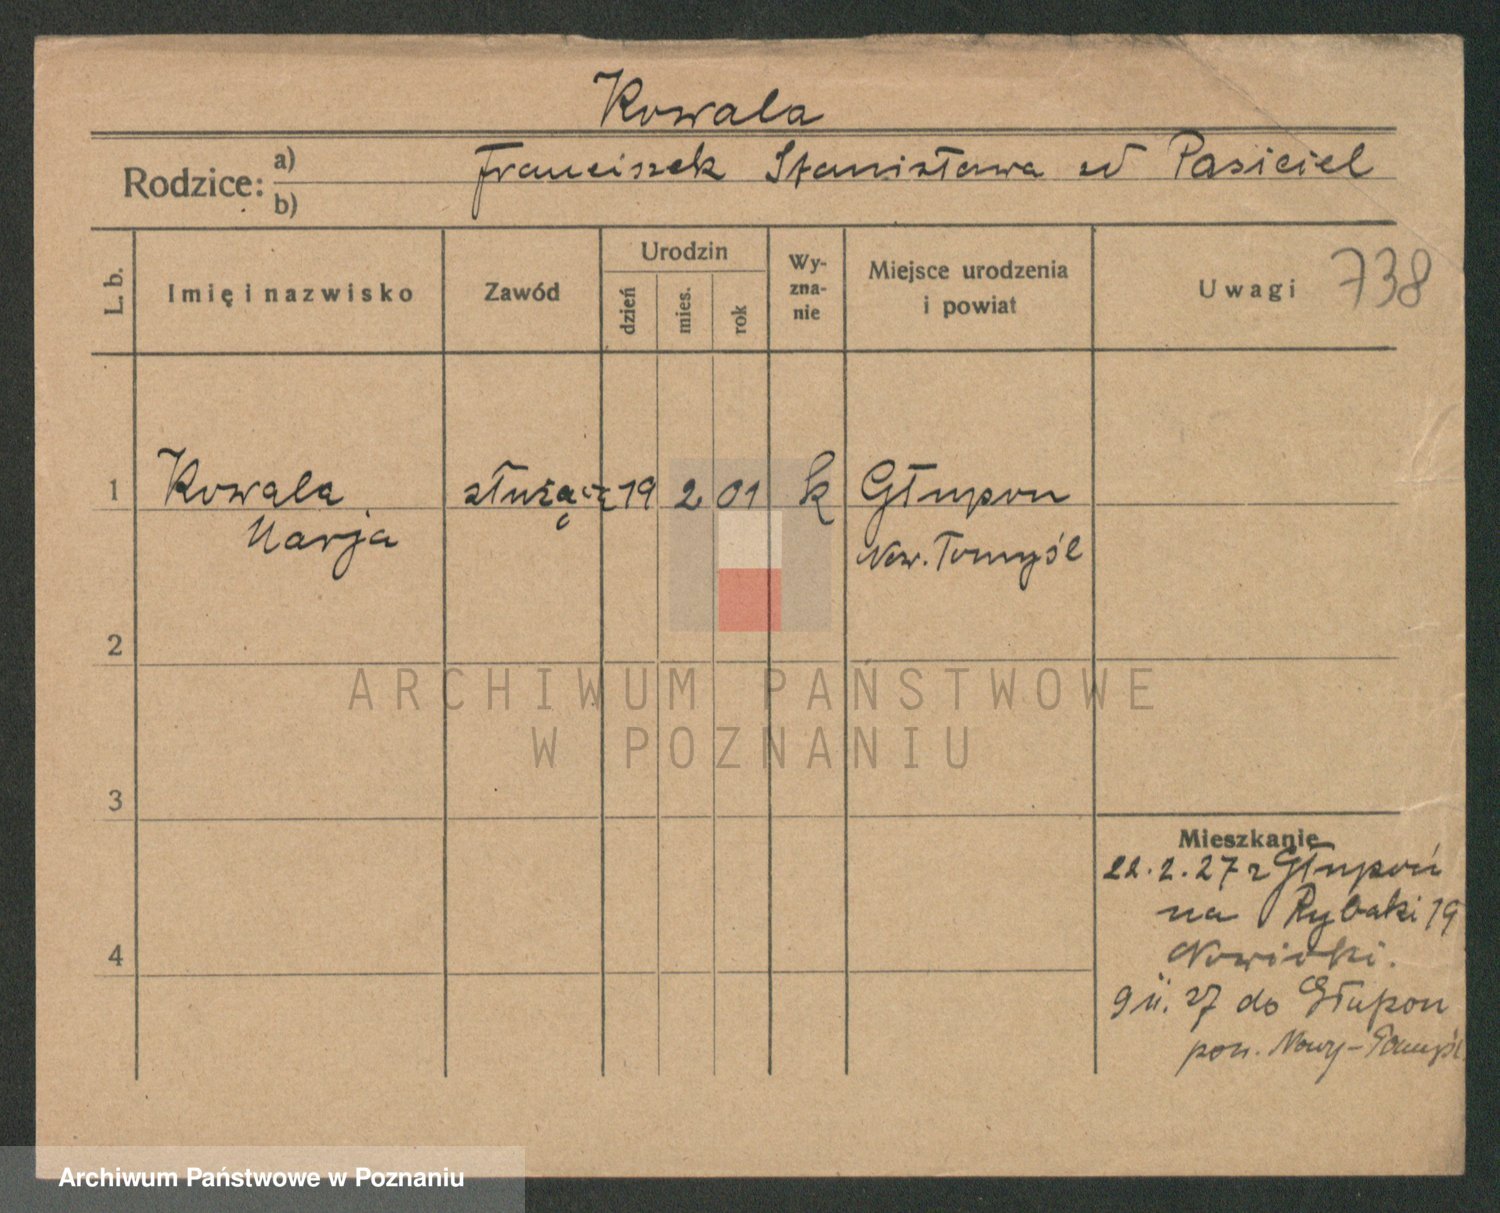 Kowala
Rodzice: a) Franciszek Stanisława zd Pasiciel
b)
L. b. Imię i nazwisko Zawód Urodzin dzień mies. rok Wy-zna-nie Miejsce urodzenia i powiat Uwagi 738
1 Kowala służąca 19 2 01 k Głupon
Marja Now. Tomyśl
2
ARCHIWUM PAŃSTWOWE
W POZNANIU
3
Mieszkanie
22.2.27 z Głupoń
na Rybaki 19
4
do Głupon
pow. Nowy-Tomyśl
Archiwum Państwowe w Poznaniu